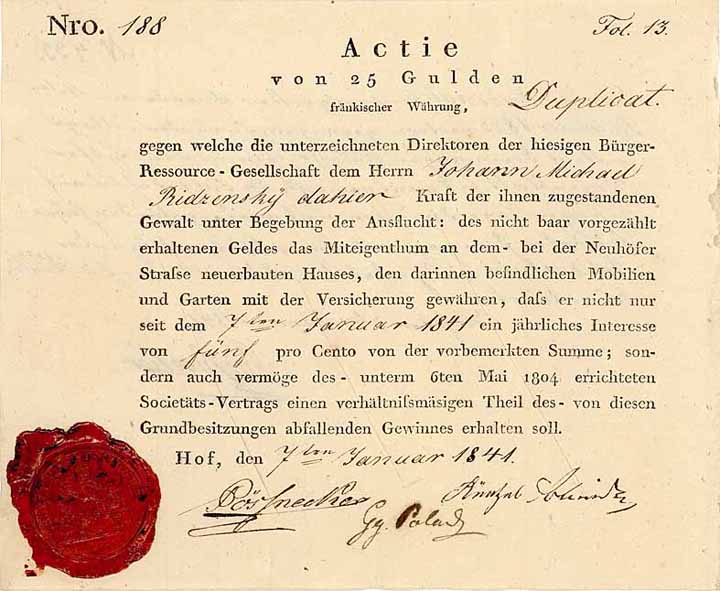 Nro. 188 Fol. 13.
Actie
von 25 Gulden
fränkischer Währung, Duplicat.
gegen welche die unterzeichneten Direktoren der hiesigen Bürger-
Ressource - Gesellschaft dem Herrn Johann Michael
Ridzensky dahier Kraft der ihnen zugestandenen
Gewalt unter Begebung der Ausflucht: des nicht baar vorgezählt
erhaltenen Geldes das Miteigenthum an dem - bei der Neuhöfer
Straſse neuerbauten Hauses, den darinnen befindlichen Mobilien
und Garten mit der Versicherung gewähren, daſs er nicht nur
seit dem 7ten Januar 1841 ein jährliches Interesse
von fünf pro Cento von der vorbemerkten Summe; son-
dern auch vermöge des - unterm 6ten Mai 1804 errichteten
Societäts - Vertrags einen verhältniſsmäsigen Theil des - von diesen
Grundbesitzungen abfallenden Gewinnes erhalten soll.
Hof, den 7ten Januar 1841.
Pößnecker Küntzel
Gg.